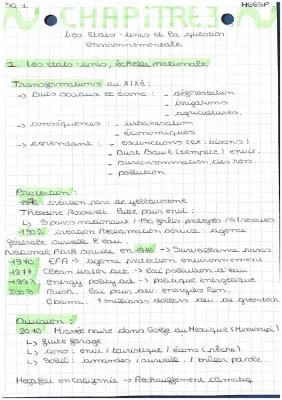 SQ 1 HGGSP
CHAPITRE 3
Les États-Unis et la question
environnementale
1. Les états-unis, échelle nationale
Transformations au XIXe :
→ Buts sociaux et écono : - déforestation
- irrigations
- agricultures.
→ conséquences : - urbanisation
- économiques
→ cependant : - extinctions (ex : bisons)
- Dust Bowl (tempête) envir.
- surconsommation des ress.
- pollution
Protection :
création parc de yellowstone
Théodore Roosevelt lutte pour envi :
↳ 5 parcs nationaux / 150 forêts protégées / 51 réserves
1902. création Reclamation Service : agence
fédérale surveille l'eau.
National Park Service en 1916 → Surveillance parcs
1970 EPA → agence protection environnement
Clean water act → loi pollution d'eau
energy policy act → politique énergétique
Bush. loi pour dev. énergies Ren.
Obama : milliards dollars dev. de greentech
Division :
2010. Marée noire dans Golfe du Mexique
↳ fuite forage
↳ cons : envi / touristique / écono (pêche)
↳ Solu : amendes / surveille / brûler pétrole.
Megafeu en californie → Réchauffement climatiq